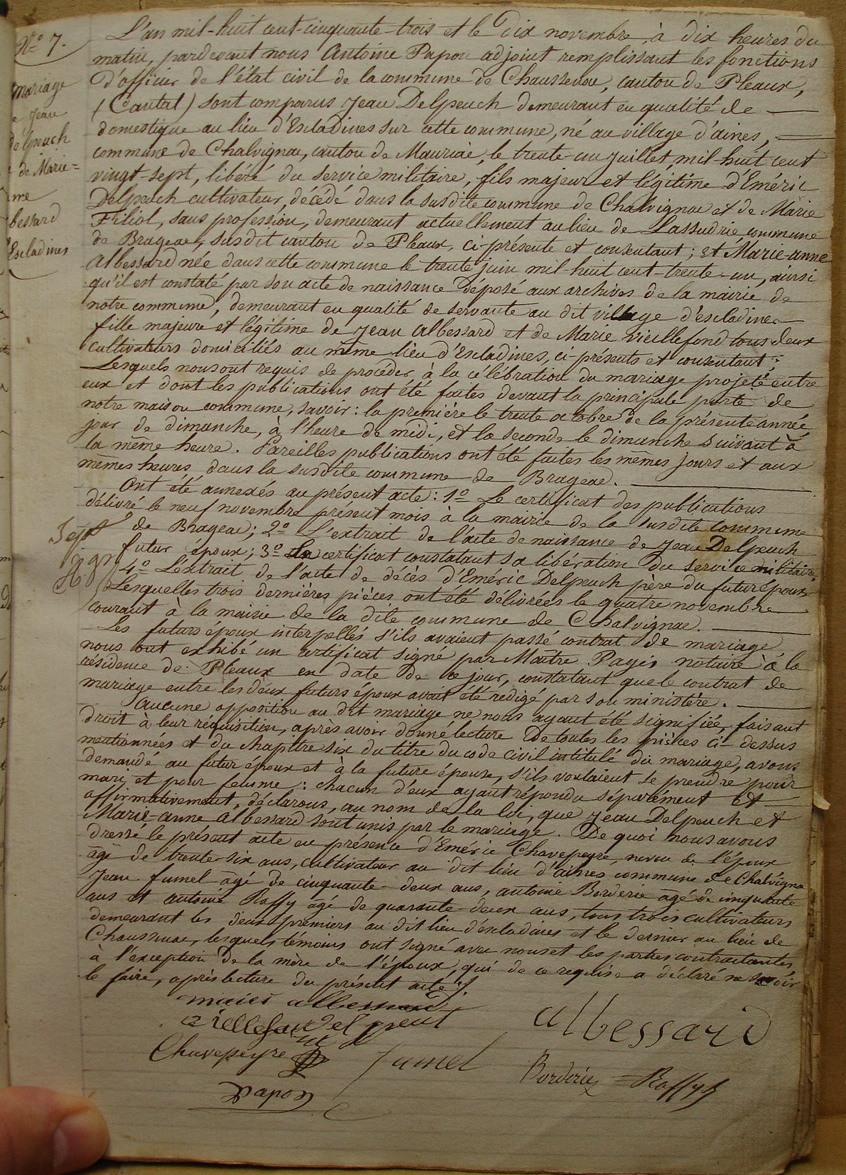 N.º 7.
mariage
de Jean
Delpeuch
et de Marie-
anne
albessard
Escladines
L'an mil-huit cent-cinquante-trois et le Dix novembre, à dix heures du
matin, pardevant nous Antoine Papon adjoint remplissant les fonctions
d'officier de l'état civil de la commune de Chaussenac, canton de Pleaux,
(Cantal) sont comparus Jean Delpeuch demeurant en qualité de
domestique au lieu d'Escladines sur cette commune, né au village d'aines,
commune de Chalvignac, canton de Mauriac, le trente-un juillet mil huit cent
vingt-sept, libéré du service militaire, fils majeur et légitime d'Eméric
Delpeuch cultivateur, décédé dans la susdite commune de Chalvignac et de Marie
Filiol, sans profession, demeurant actuellement au lieu de Lassudrie commune
de Brageac, susdit canton de Pleaux, ci-présente et consentant ; et Marie-anne
Albessard née dans cette commune le trente juin mil-huit cent-trente-un, ainsi
qu'il est constaté par son acte de naissance déposé aux archives de la mairie de
notre commune, demeurant en qualité de servante au dit village d'escladines
fille majeure et légitime de Jean Albessard et de Marie vieillefond tous deux
cultivateurs domiciliés au même lieu d'Escladines, ci-présents et consentant :
Lesquels nous ont requis de procéder à la célébration du mariage projeté entre
eux et dont les publications ont été faites devant la principale porte de
notre maison commune, savoir : la première le trente octobre de la présente année
jour de dimanche, à l'heure de midi, et la seconde le dimanche suivant à
la même heure. Pareilles publications ont été faites les mêmes jours et aux
mêmes heures dans la susdite commune de Brageac.
Ont été annexés au présent acte : 1º Le certificat des publications
délivré le neuf novembre présent mois à la mairie de la susdite commune
de Brageac ; 2º L'extrait de l'acte de naissance de Jean Delpeuch
futur époux ; 3º Le certificat constatant sa libération du service militaire,
4º L'extrait de l'acte de décès d'Eméric Delpeuch père du futur époux
Lesquelles trois dernières pièces ont été délivrées le quatre novembre
courant à la mairie de la dite commune de Chalvignac.
Les futurs époux interpellés s'ils avaient passé contrat de mariage
nous ont exhibé un certificat signé par Maître Pagès notaire à la
résidence de Pleaux en date de ce jour, constatant que le contrat de
mariage entre les deux futurs époux avait été rédigé par son ministère.
Aucune opposition au dit mariage ne nous ayant été signifiée, faisant
droit à leur réquisition, après avoir donné lecture de toutes les pièces ci-dessus
mentionnées et du chapitre six du titre du code civil intitulé du mariage, avons
demandé au futur époux et à la future épouse, s'ils voulaient se prendre pour
mari et pour femme : chacun d'eux ayant répondu séparément et
affirmativement, déclarons, au nom de la loi, que Jean Delpeuch et
Marie-anne Albessard sont unis par le mariage. De quoi nous avons
dressé le présent acte en présence d'Eméric Chavepeyre, neveu de l'époux
âgé de trente-six ans, cultivateur au dit lieu d'aines commune de Chalvignac
Jean fumel agé de cinquante-deux ans, antoine Borderie agé de cinquante
ans et antoine Raffy âgé de quarante-deux ans, tous trois cultivateurs
demeurant les deux premiers au dit lieu d'escladines et le dernier au lieu de
Chaussenac, lesquels témoins ont signé avec nous et les parties contractantes
à l'exception de la mère de l'époux, qui de ce requise a déclaré ne savoir
le faire, après lecture du présent acte.
albessard
Delpeuch
albessard
Chavepeyre
fumel
Borderie
Raffy
Papon